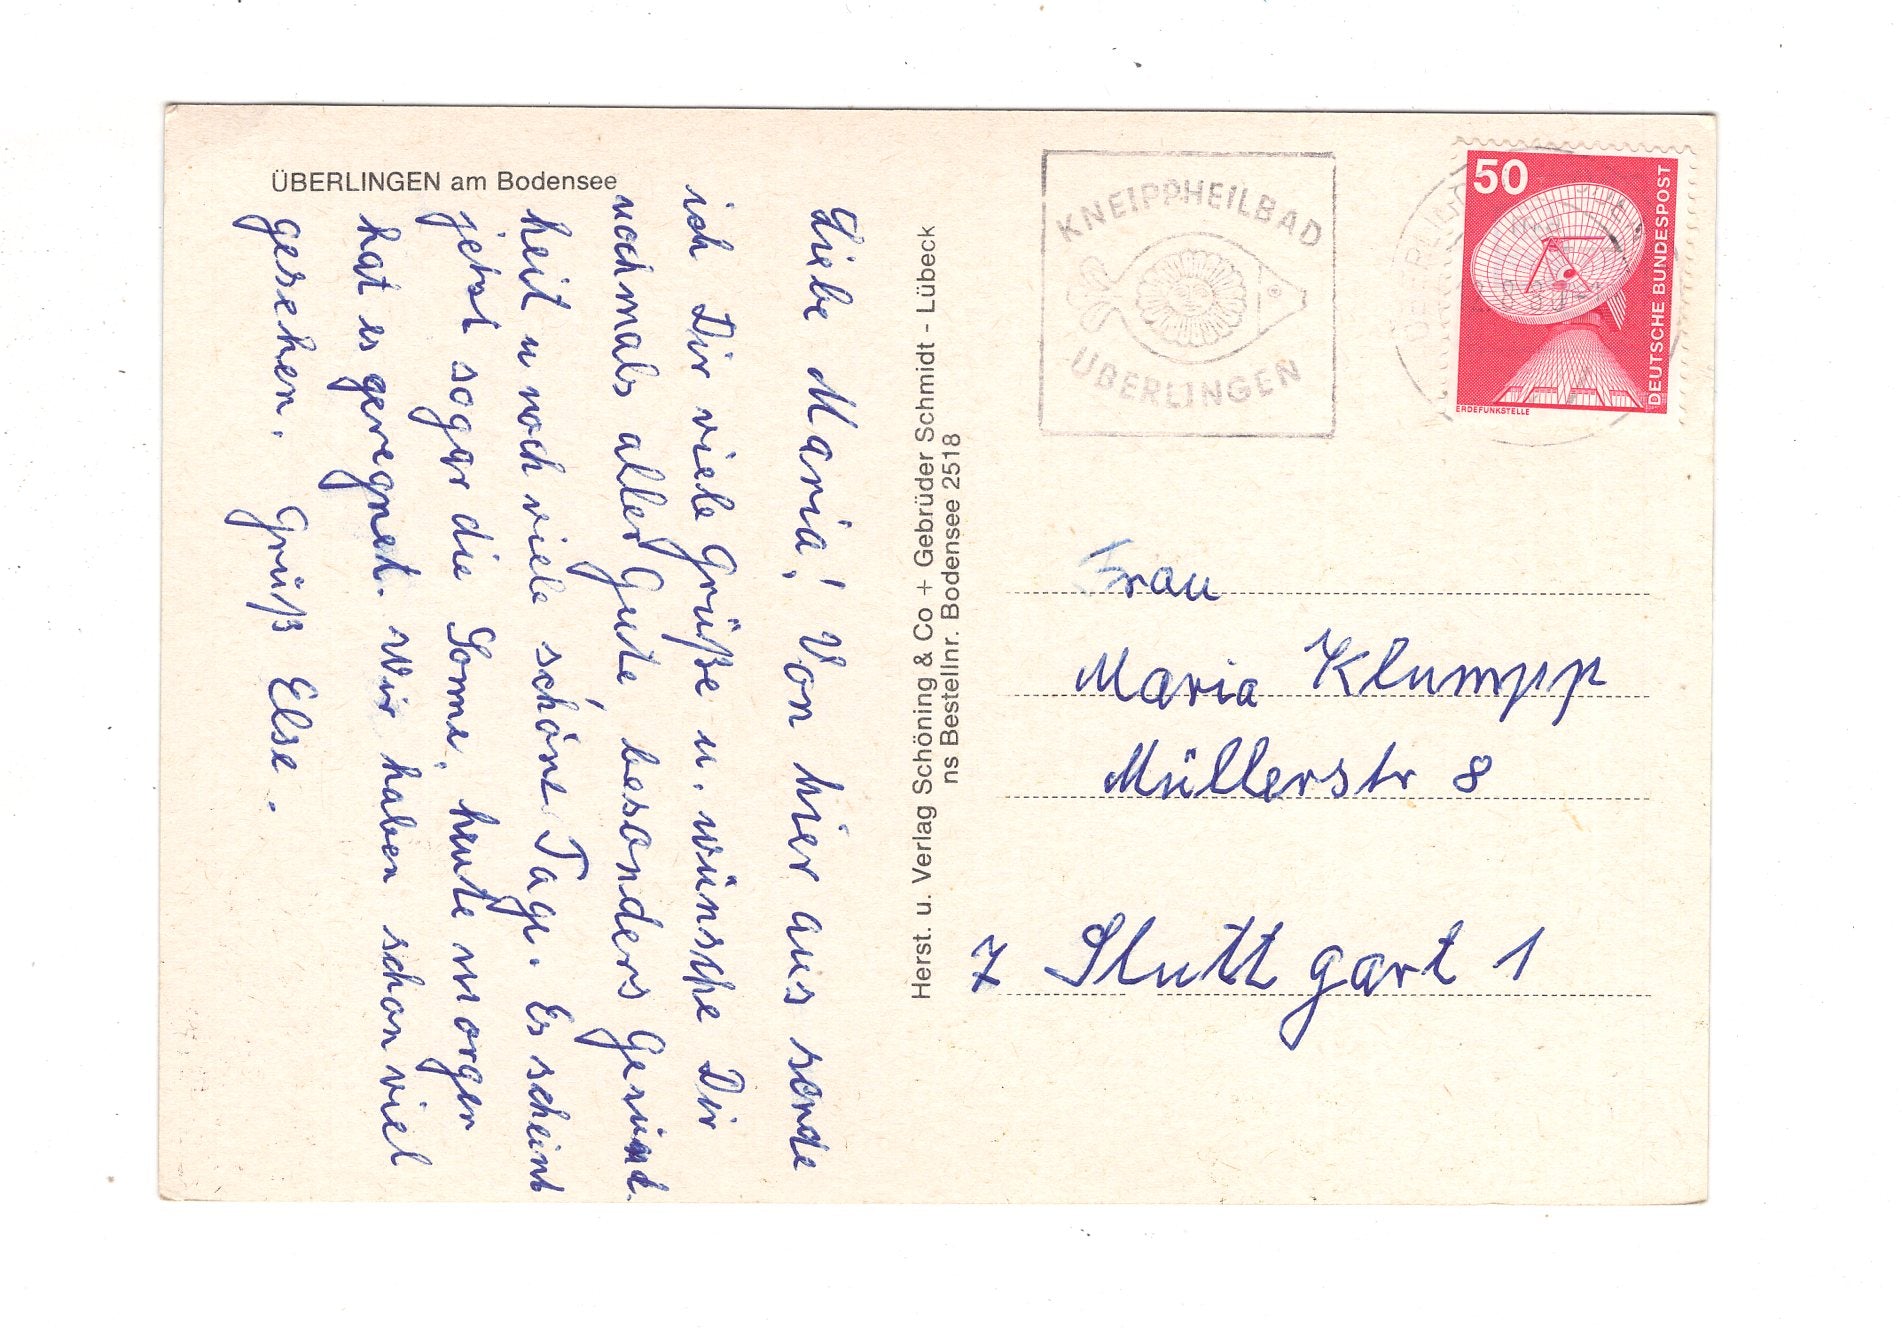 ÜBERLINGEN am Bodensee
Liebe Maria! Von hier aus sende
ich Dir viele Grüße u. wünsche Dir
nochmals alles Gute besonders Gesund
heit u noch viele schöne Tage. Es scheint
jetzt sogar die Sonne, heute morgen
hat es geregnet. Wir haben schon viel
gesehen. Gruß Else.
Herst. u. Verlag Schöning & Co + Gebrüder Schmidt - Lübeck
ns Bestellnr. Bodensee 2518
KNEIPPHEILBAD
ÜBERLINGEN
50
DEUTSCHE BUNDESPOST
ERDEFUNKSTELLE
Frau
Maria Klumpp
Müllerstr 8
7 Stuttgart 1